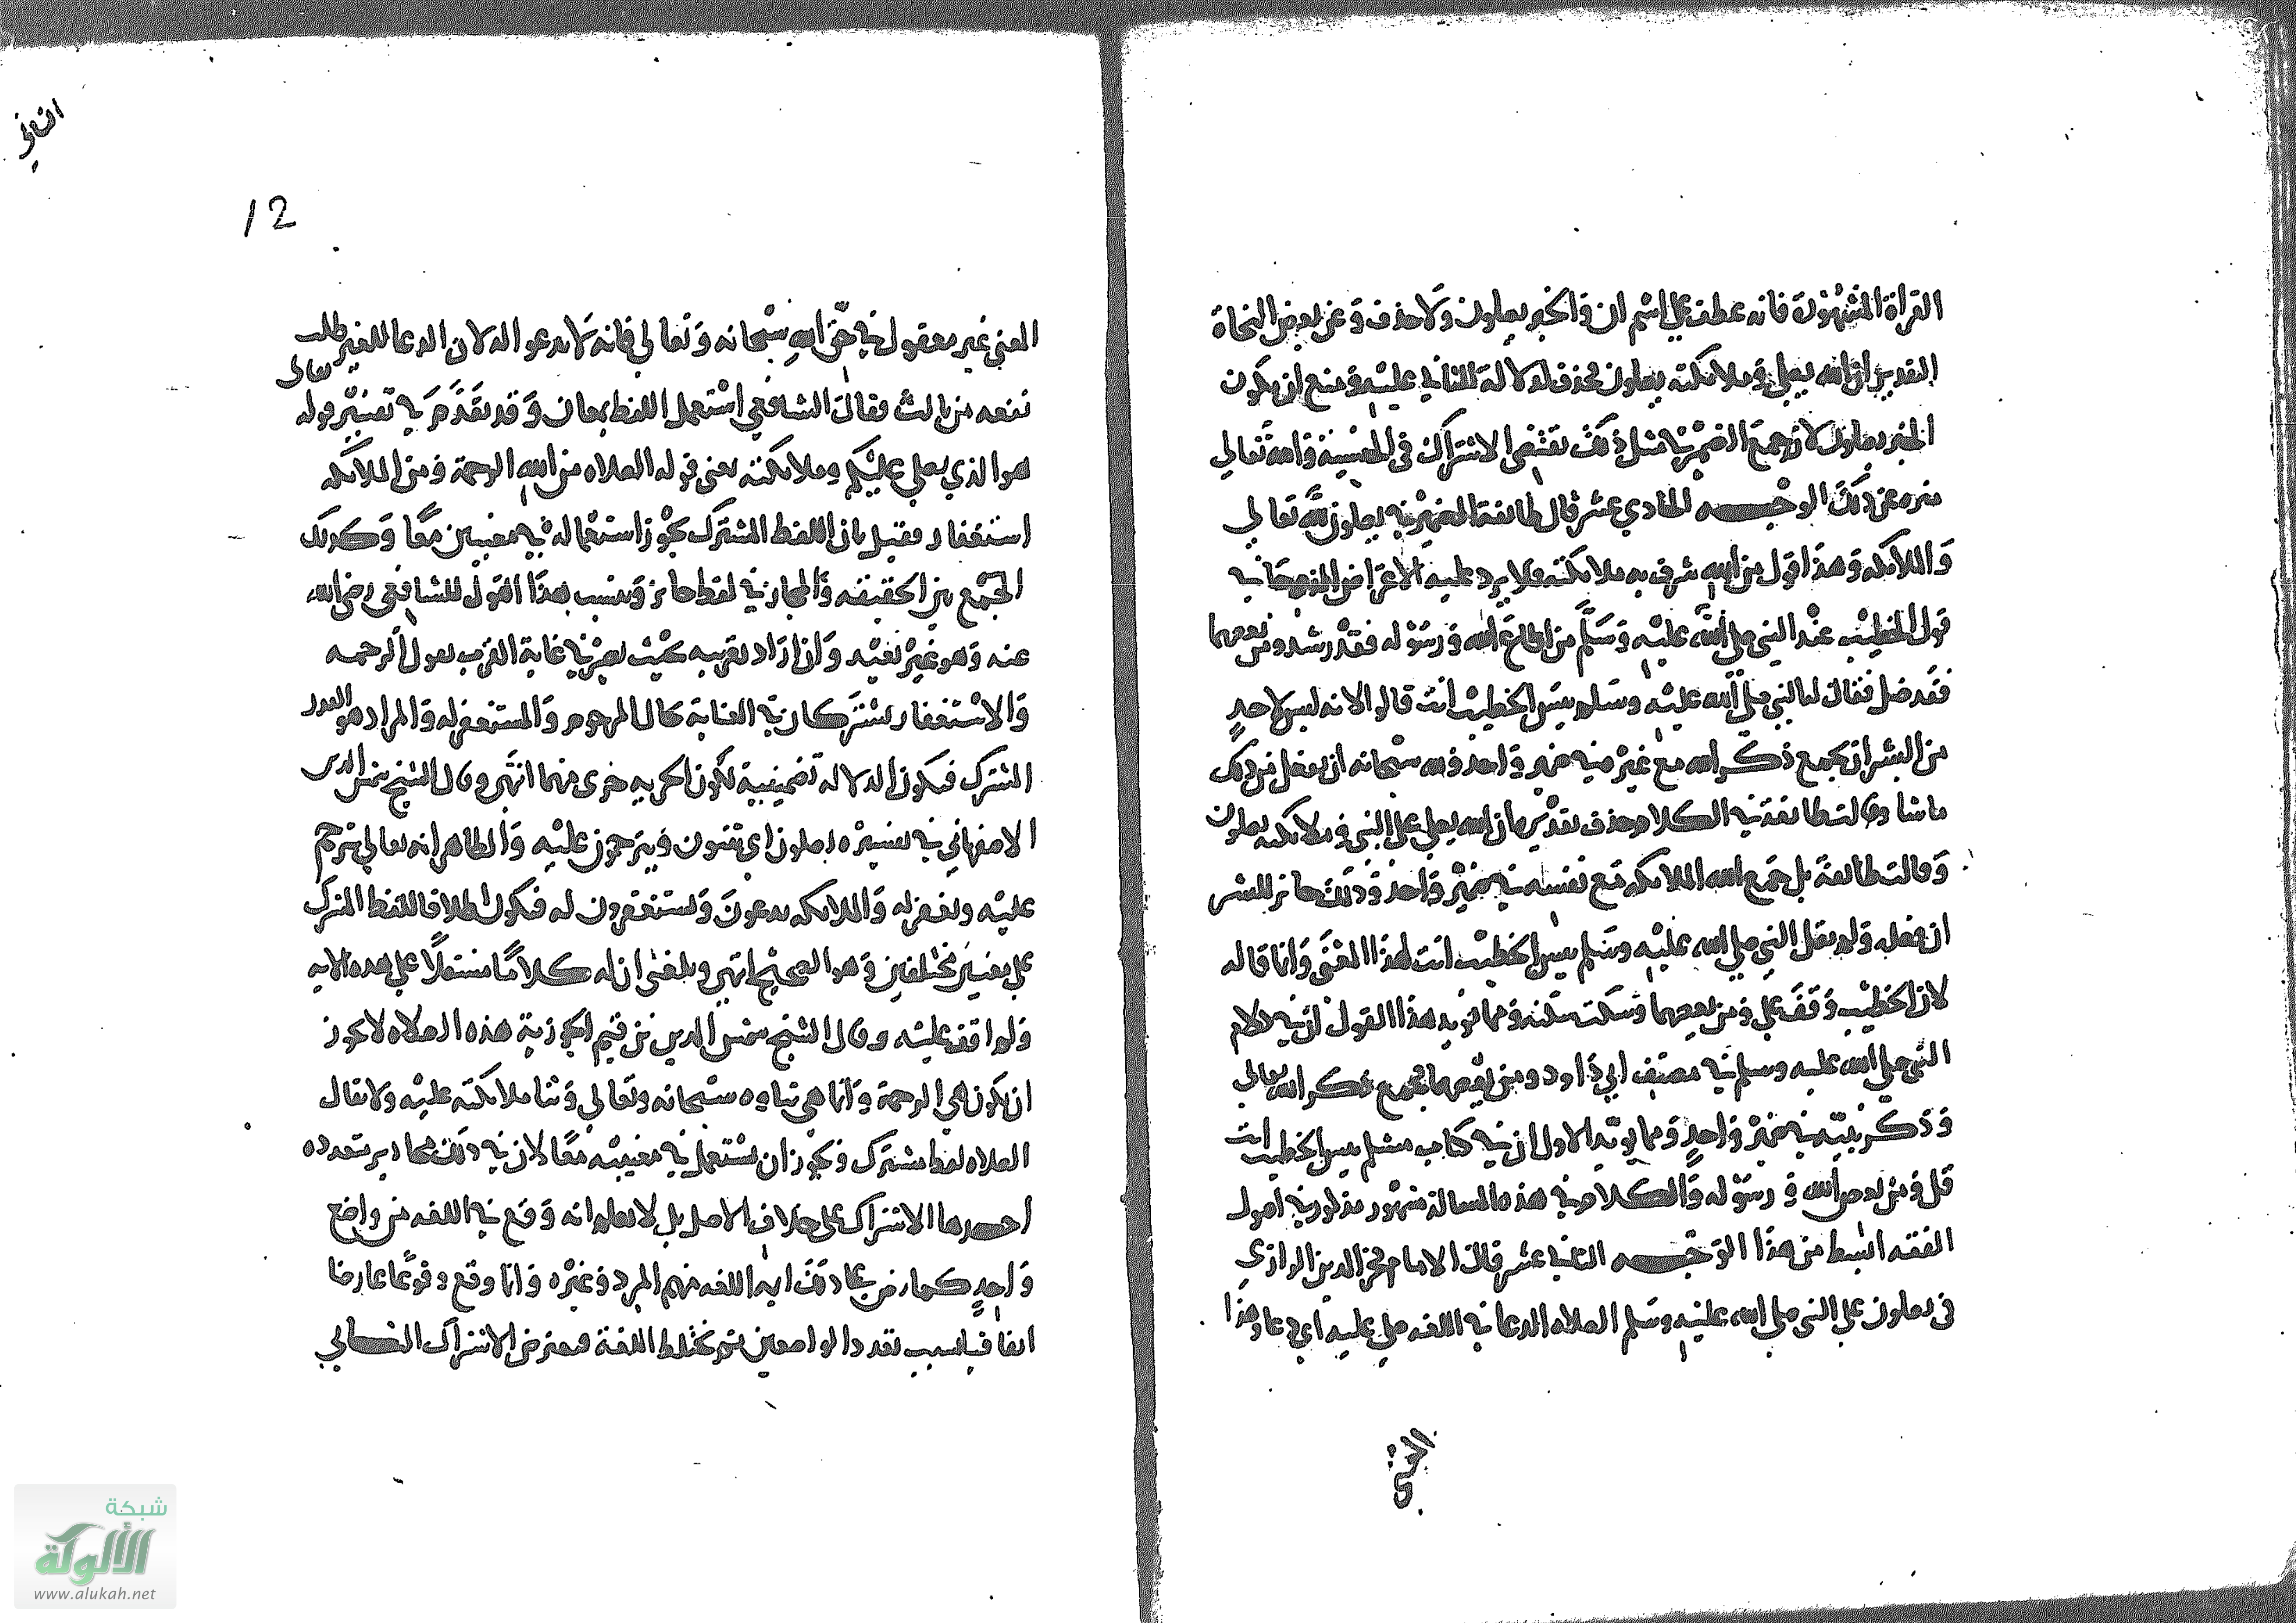 القراة المشهورة فانه عطف علي اسم ان والخبر يصلون ولا حذف وعن بعض النحاة
التقدير ان الله يصلي وملائكته يصلون فحذف لدلالة الثاني عليه ومنع ان يكون
الخبر يصلون لان جمع الضمير في مثل ذلك يقتضي الاشتراك في والله تعالي
منزه عن ذلك الوجه الحادي عشر قال طائفة الضمير في يصلون لله تعالي
والملائكة وهذا قول من الله شرف به ملائكته فلا يرد عليه الاعتراض الذي جا في
قول الخطيب عند النبي صلي الله عليه وسلم من اطاع الله ورسوله فقد رشد ومن يعصهما
فقد ضل فقال له النبي صلي الله عليه وسلم بيس الخطيب انت قالوا لانه ليس لاحد
من البشر ان يجمع ذكر الله مع غيره في ضمير واحد ولله سبحانه ان يفعل من ذلك
ماشا وقالت طائفة في الكلام حذف تقديره ان الله يصلي علي النبي وملائكته يصلون
وقالت طائفة بل جمع الله الملائكة مع نفسه في ضمير واحد وذلك جائز للبشر
ان فعله ولم يقل النبي صلي الله عليه وسلم بيس الخطيب انت لهذا المعني وانما قاله
لان الخطيب وقف علي ومن يعصهما وسكت سكتة ومما يؤيد هذا القول ان في كلام
النبي صلي الله عليه وسلم في مصنف ابي داود ومن يعصهما فجمع ذكر الله تعالي
وذكر نبيه في ضمير واحد ومما يؤيد الاول ان في كتاب مسلم بيس الخطيب انت
قل ومن يعص الله ورسوله والكلام في هذه المسالة مشهور مذكور في اصول
الفقه ابسط من هذا الوجه الثاني عشر قال الامام فخر الدين الرازي
في يصلون علي النبي صلي الله عليه وسلم الصلاة الدعا في اللغه صلي عليه اي دعا وهذا
المعني
12
المعني غير معقول في حق الله سبحانه وتعالي فانه لا يدعو اله لان الدعا للغير طلب
نفعه من ثالث فقال الشافعي استعمل اللفظ بمعان وقد تقدم في تفسير قوله تعالى
هو الذي يصلي عليكم وملائكته يعني قوله الصلاة من الله الرحمة ومن الملائكة
استغفار فقيل بان اللفظ المشترك يجوز استعماله في معنيين معا وكذلك
الجمع بين الحقيقة والمجاز في لفظ جائز وينسب هذا القول للشافعي رضي الله
عنه وهو غير بعيد وان اراد تقريبه بحيث يصير في غاية القرب يقول الرحمه
والاستغفار يشتركان في العناية بحال المرحوم والمستغفر له والمراد هو القدر
المشترك فيكون الدلالة تضمينية لكون الحربه جزى منهما انتهى وقال الشيخ شمس الدين
الاصفهاني في تفسيره يصلون اي يثنون ويترحمون عليه والظاهر انه تعالي يترحم
عليه ويغفر له والملائكه يدعون ويستغفرون له فيكون اطلاقا للفظ المشترك
علي معنيين مختلفين وهو الصحيح انتهى وبلغني ان له كلاما مستقلا علي هذه الايه
ولم اقف عليه وقال الشيخ شمس الدين بن قيم الجوزية هذه الصلاة لا يجوز
ان تكون هي الرحمة وانما هي ثناوه سبحانه وتعالي وثنا ملائكته عليه ولا يقال
الصلاة لفظ مشترك ويجوز ان يستعمل في معنييه معا لان في ذلك محاذير متعدده
احدها الاشتراك علي خلاف الاصل بل لا يعلم انه وقع في اللغه من واضع
واحد كما نص علي ذلك ايمة اللغه منهم المبرد وغيره وانما وقع وقوعا عارضا
اتفاقيا بسبب تعدد الواضعين ثم تختلط اللغة فيعترض الاشتراك الثاني
الثاني
شبكة
الألوكة
www.alukah.net